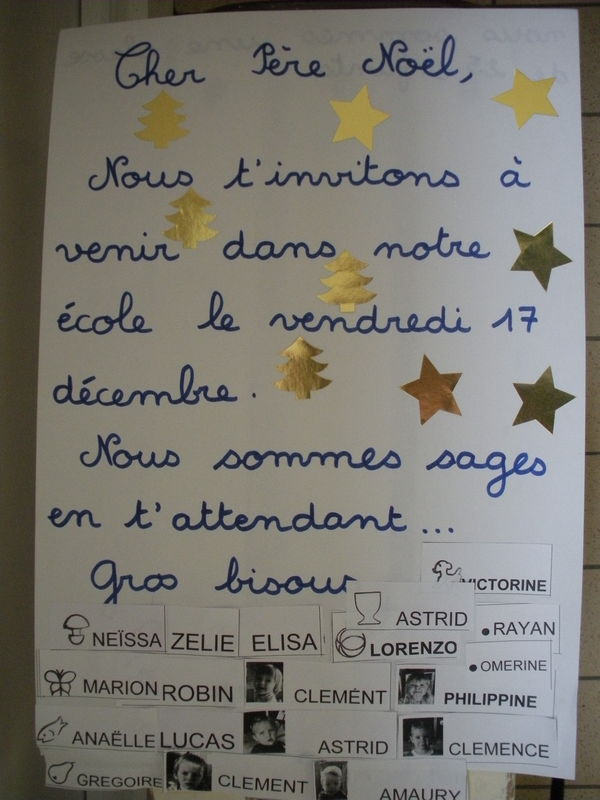 Cher Père Noël,
Nous t'invitons à
venir dans notre
école le vendredi 17
décembre.
Nous sommes sages
en t'attendant...
Gros bisoux
VICTORINE
ASTRID
NEÏSSA ZELIE ELISA LORENZO RAYAN
OMERINE
MARION ROBIN CLEMENT PHILIPPINE
ANAËLLE LUCAS ASTRID CLEMENCE
GREGOIRE CLEMENT AMAURY